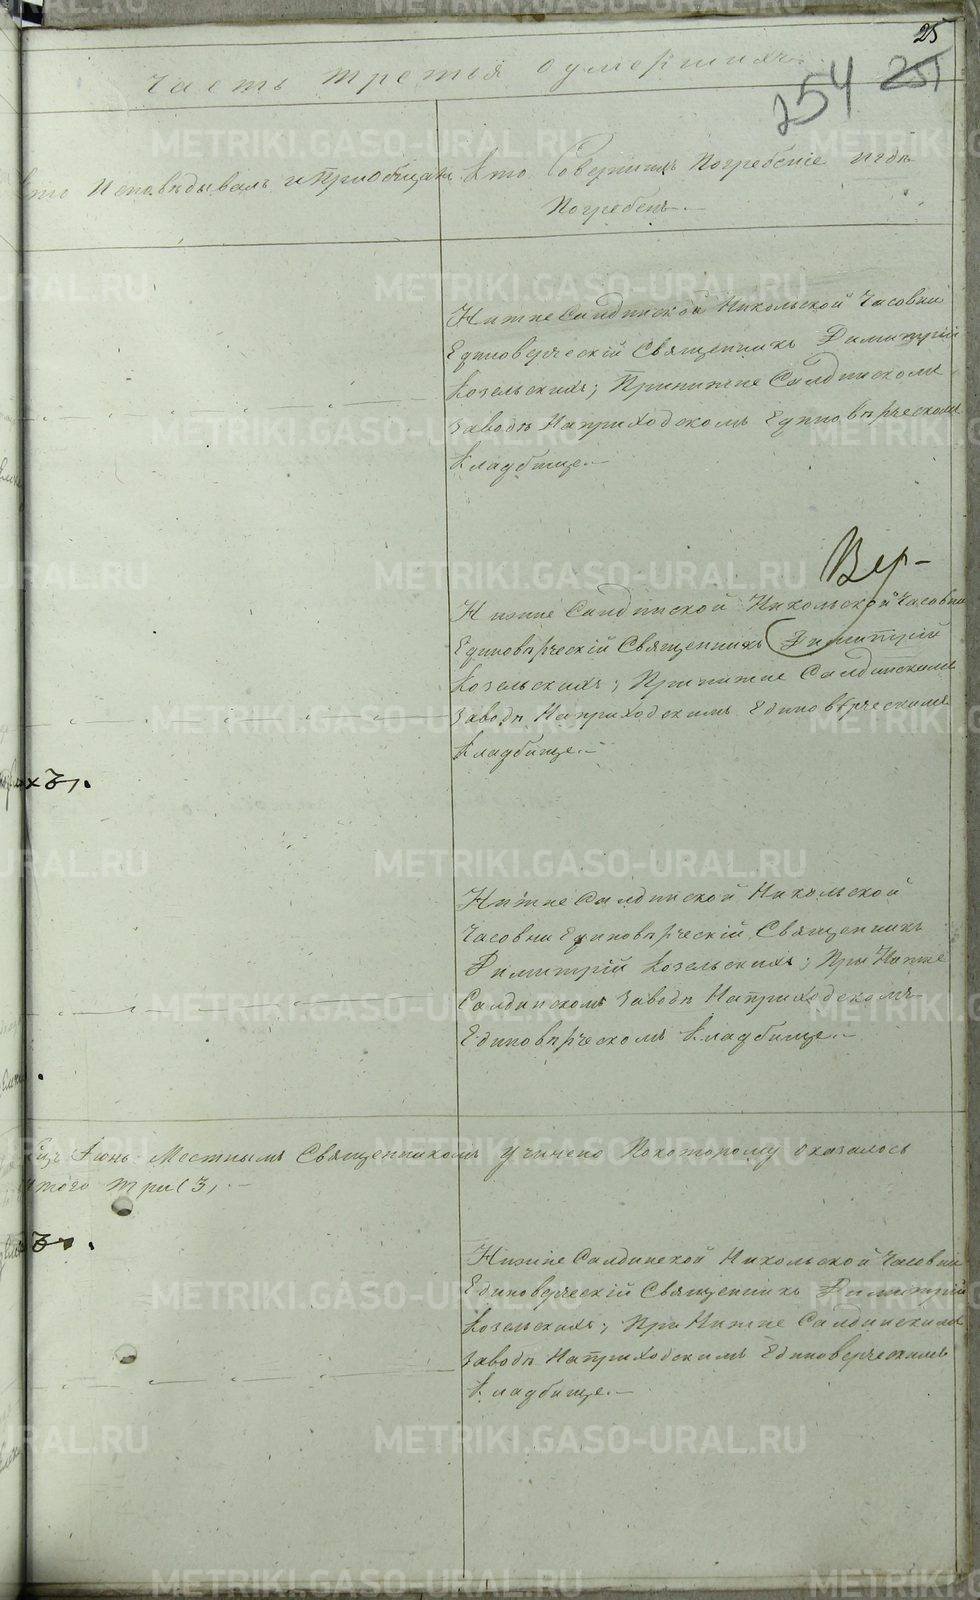 25
254 251
Часть третья о умершихъ.
Кто Исповѣдывалъ и Приобщалъ
Кто Совершилъ Погребеніе и гдѣ
Погребенъ.
Нижне Салдинской Никольской Часовни
Единоверческій Священникъ Димитрій
Козельскихъ; При нижне Салдинскомъ
заводѣ На приходскомъ Единовѣрческомъ
Кладбище.
Вер-
Нижне Салдинской Никольской Часовни
Единовѣрческій Священникъ Димитрій
Козельскихъ; При нижне Салдинскомъ
заводѣ На приходскимъ Единовѣрческимъ
Кладбище.
хъ.
Нижне Салдинской Никольской
Часовни Единовѣрческій Священникъ
Димитрій Козельскихъ; При Нижне
Салдинскомъ заводѣ На приходскомъ
Единовѣрческомъ Кладбище.
Іюнь Местнымъ Священникомъ учинено По которому оказалось
итого три (3,
Нижне Салдинской Никольской Часовни
Единоверческій Священникъ Димитрій
Козельскихъ; При Нижне Салдинскимъ
заводѣ На приходскимъ Единоверческимъ
Кладбище.
METRIKI.GASO-URAL.RU